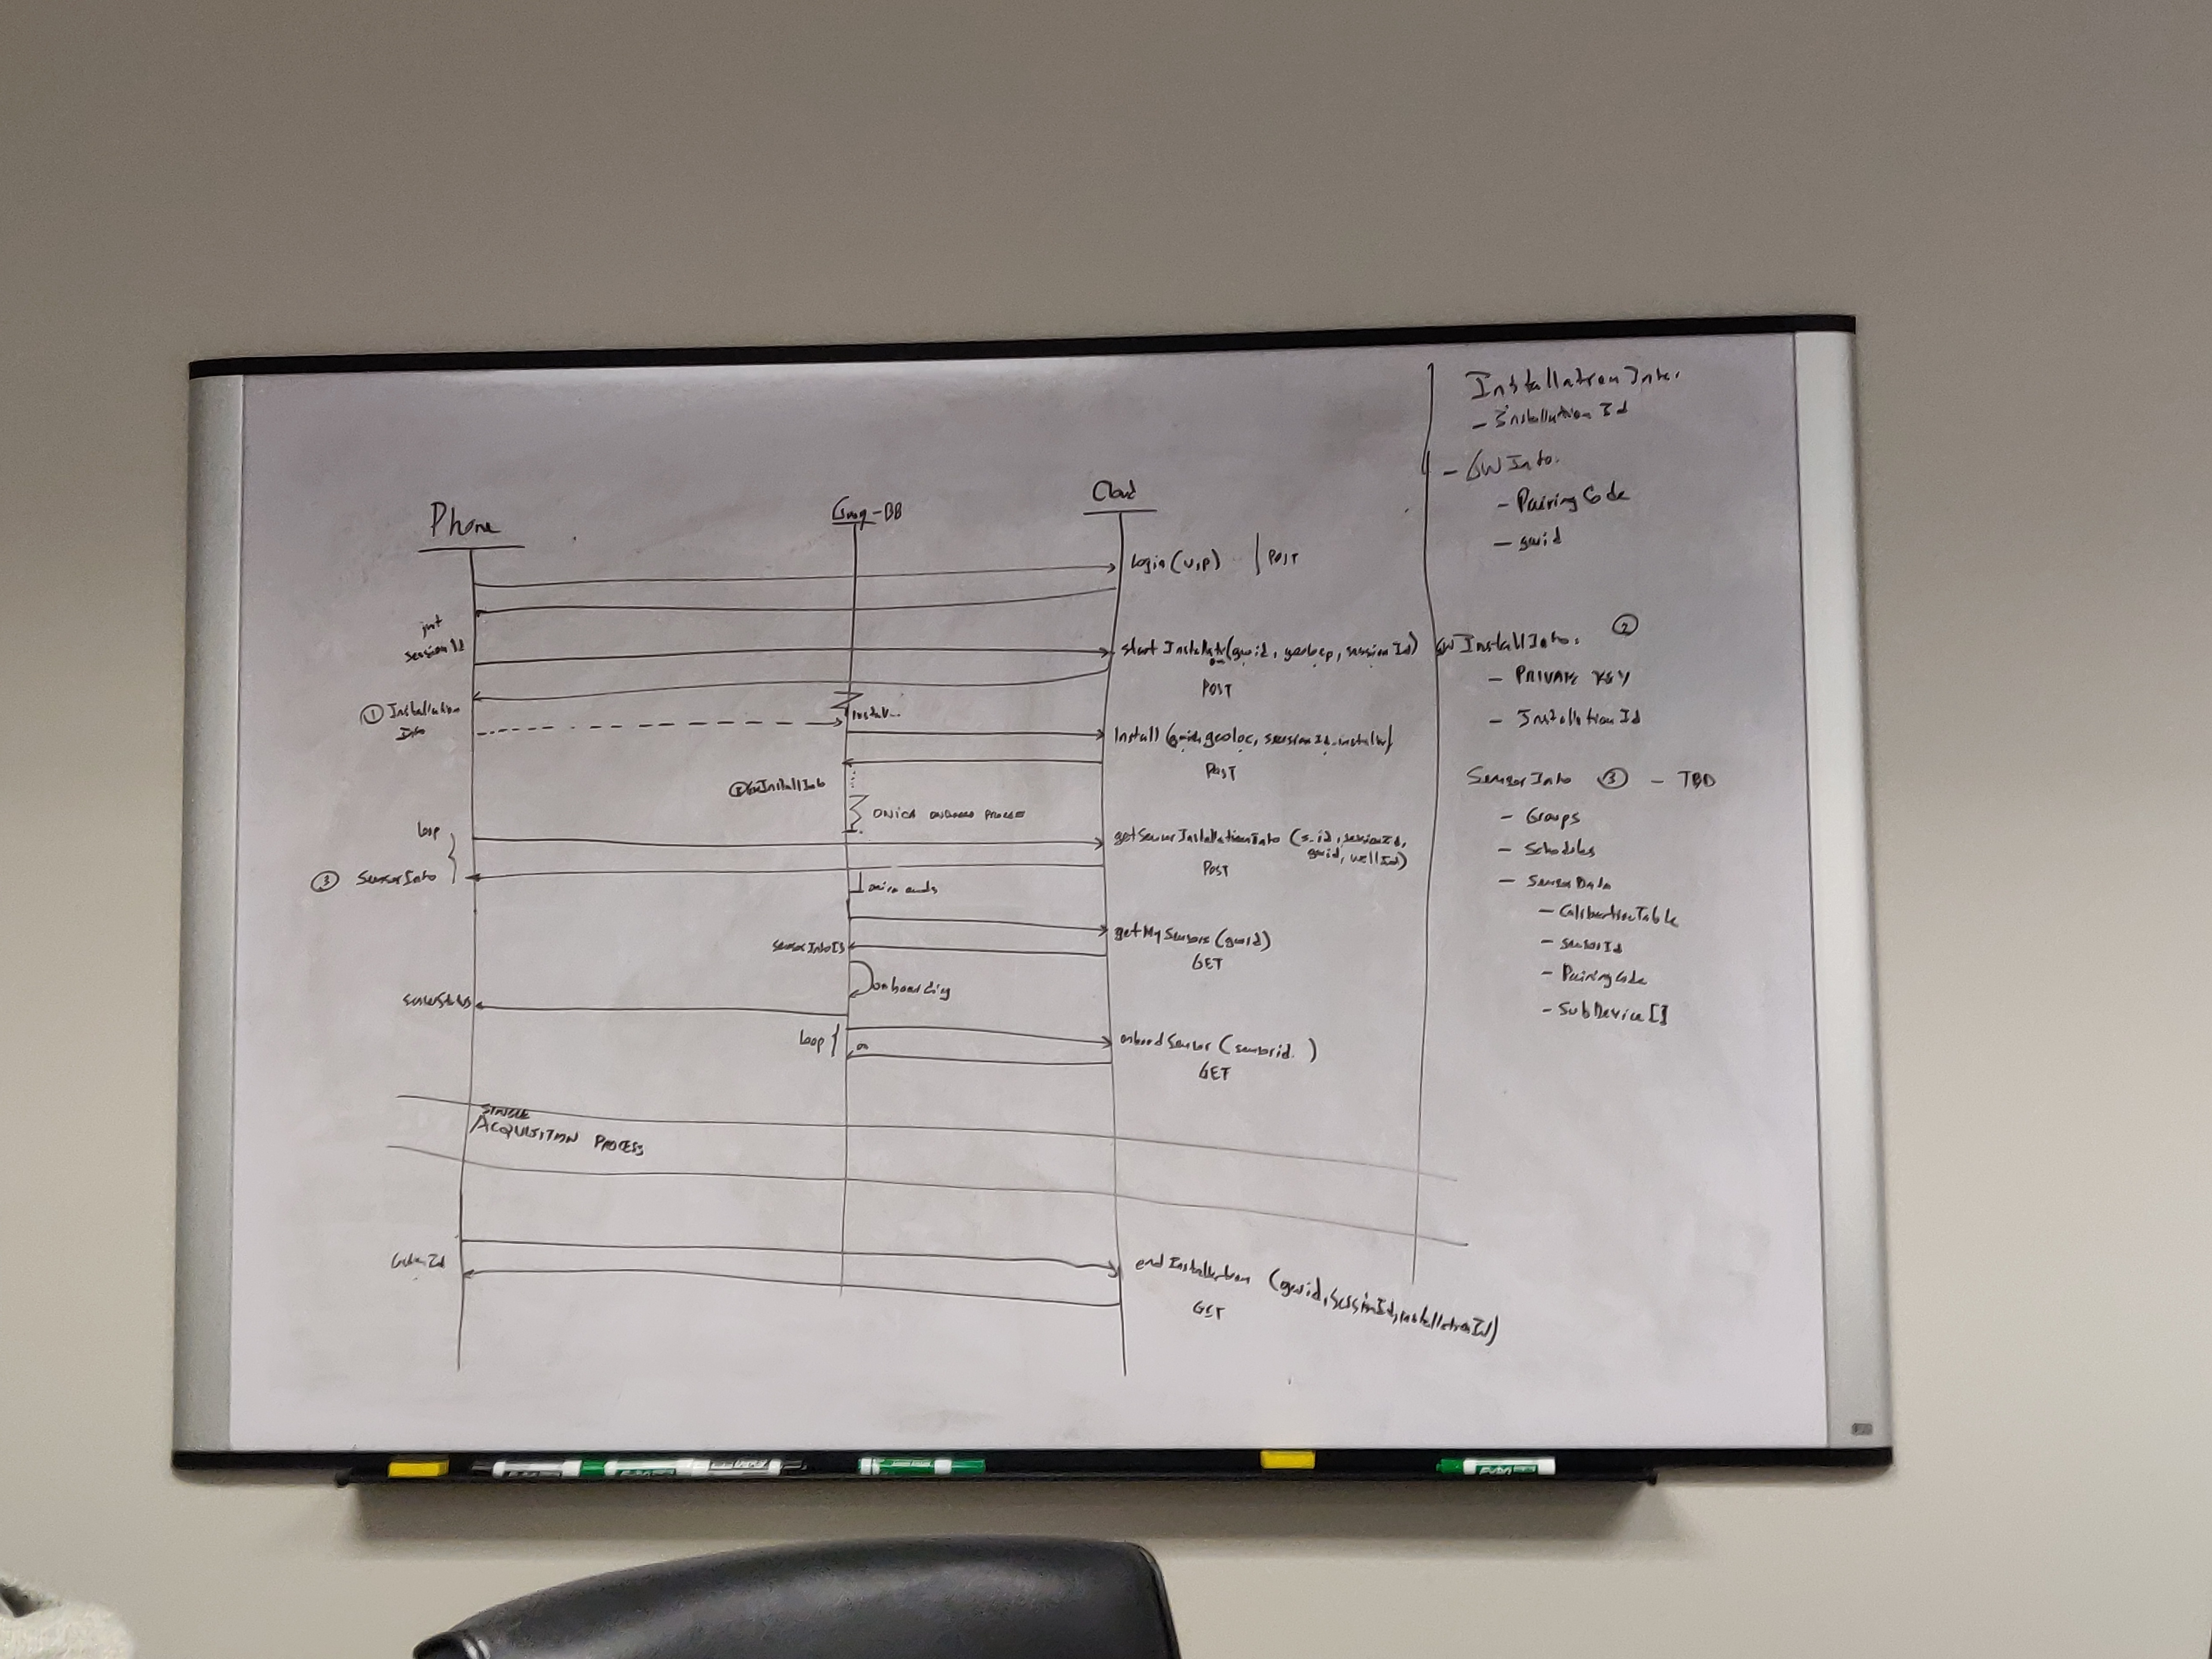 Phone
Cloud
login (u,p) | POST
jwt
sessionId
start Installation (gwid, geoloc, sessionId)
POST
① Installation
Info
Install (gwid, geoloc, sessionId
POST
② GWInstallInfo
ONICA ONBOARD PROCESS
loop
getSensorInstallationInfo (s_id, sessionId,
gwid, wellId)
POST
③ SensorInfo
onica ends
getMySensors (gwid)
GET
onboarding
loop
onboardSensor (sensorid )
GET
SINGLE
ACQUISITION PROCESS
endInstallation (gwid, sessionId, installationId)
GET
Installation Info.
- Installation Id
- GW Info.
- Pairing Code
- gwid
GW InstallInfo. ②
- PRIVATE KEY
- InstallationId
SensorInfo ③ - TBD
- Groups
- Schedules
- SensorData
- CalibrationTable
- sensorId
- PairingCode
- SubDevice []